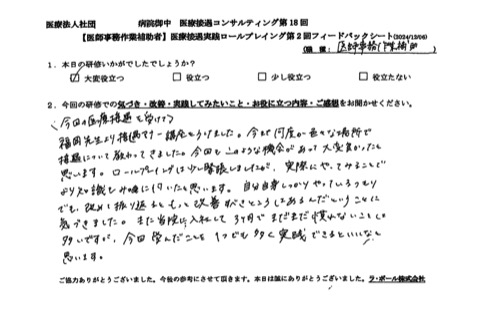 医療法人社団 病院御中 医療接遇コンサルティング第18回
【医師事務作業補助者】医療接遇実践ロールプレイング第2回フィードバックシート(2024/12/06)
(職種: 医師事務作業補助
1. 本日の研修いかがでしたでしょうか?
☑ 大変役立つ □ 役立つ □ 少し役立つ □ 役立たない
2. 今回の研修での気づき・改善・実践してみたいこと・お役に立つ内容・ご感想をお聞かせください。
(今回の医療接遇を受けて)
福岡先生より接遇マナー講座をうけました。今まで何度か色々な場所で
接遇について教わってきました。今回もこのような機会があって大変良かったと
思います。ロールプレイングは少し緊張しましたが、実際にやってみることで
より知識も身に付いたと思います。自分自身しっかりやっているつもり
でも、改めて振り返るともっと改善すべきところはあるんだということに
気づきました。また当院に入社して3ヶ月でまだまだ慣れないことも
多いですが、今回学んだことを1つでも多く実践できるといいなと
思います。
ご協力ありがとうございました。今後の参考にさせて頂きます。本日は誠にありがとうございました。ラ・ポール株式会社